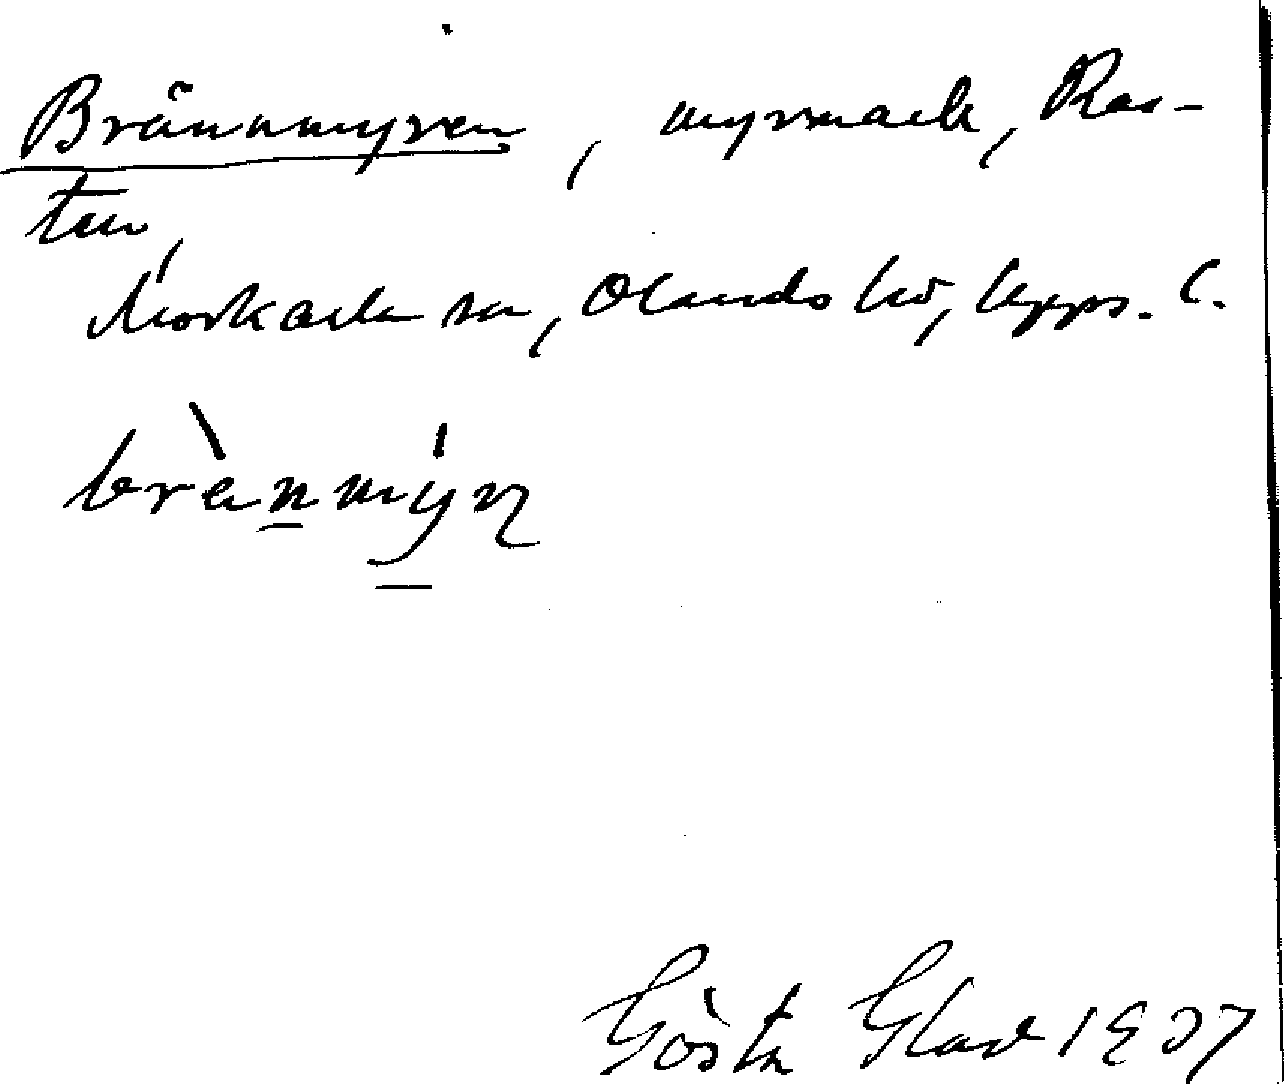 Brännmyren, myrmark, Ras-
ten,
Morkarla sn, Olands hd, Upps. l.
brènmýrn
Gösta Glad 1937